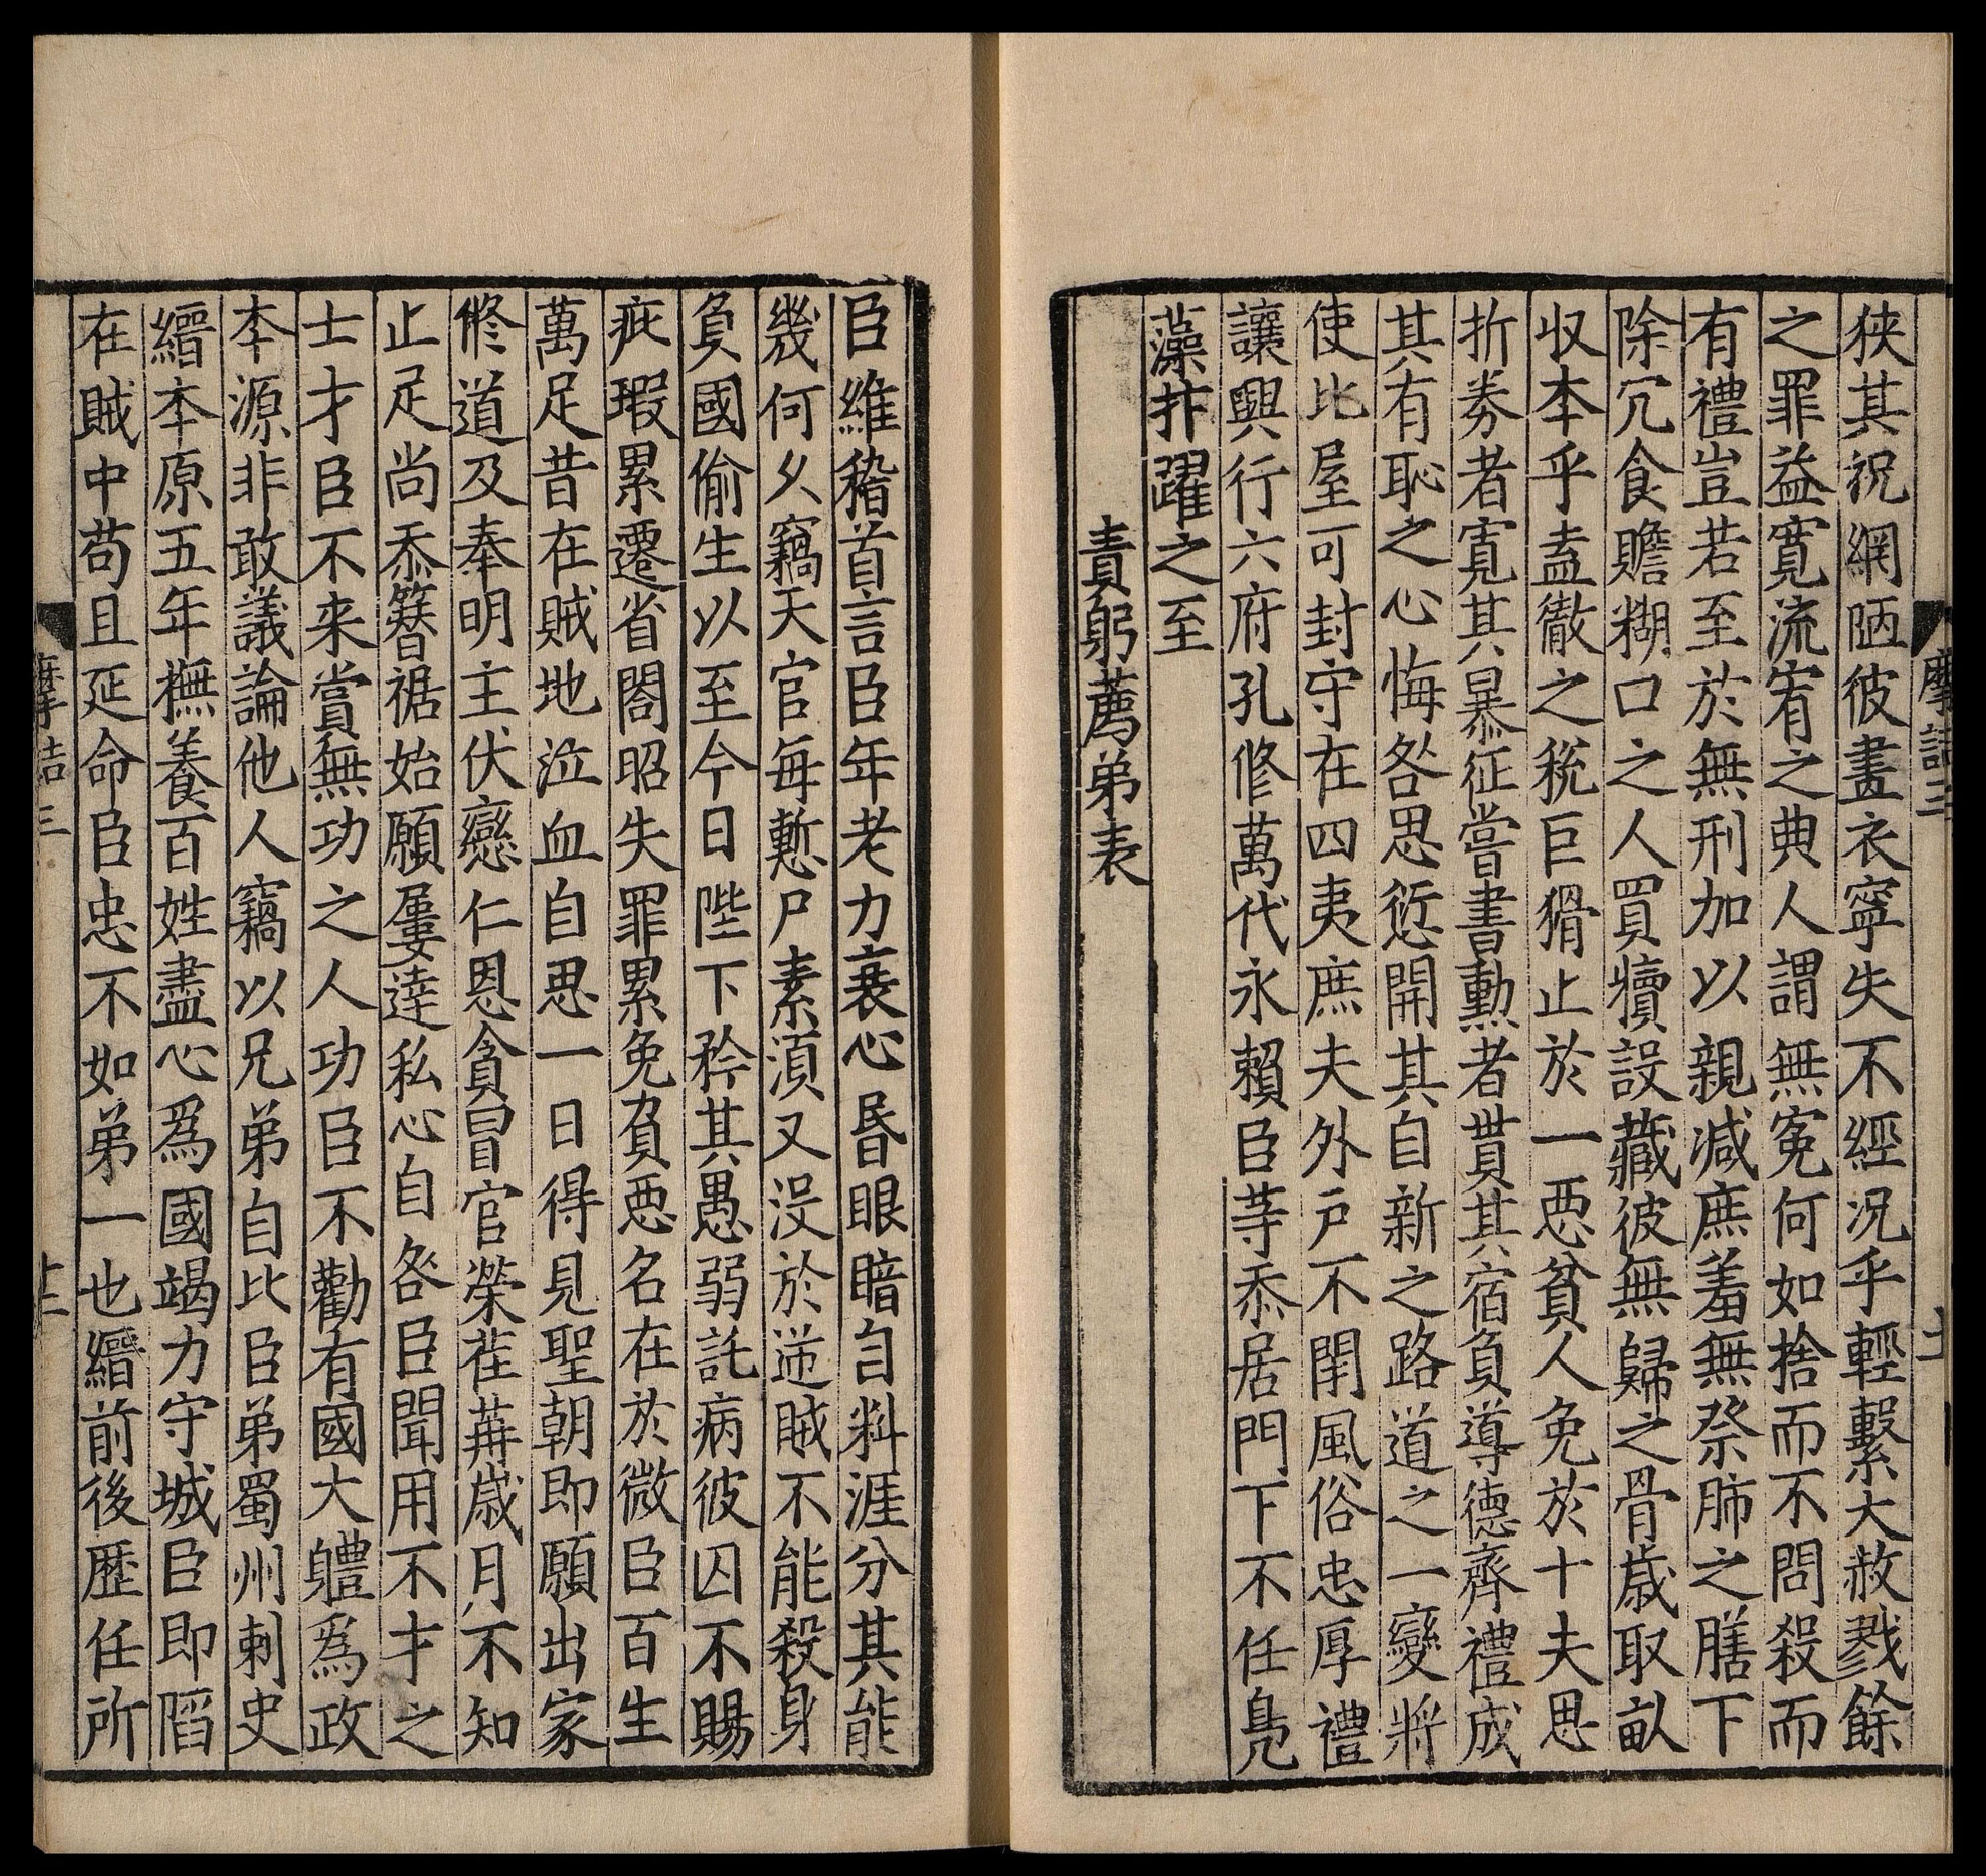 狭其祝網陋彼畫衣寧失不經況乎輕繫大赦戮餘
之罪益寬流宥之典人謂無寃何如捨而不問殺而
有禮豈若至於無刑加以親减庶羞無祭肺之膳下
除冗食贍糊口之人買犢設藏彼無歸之骨歲取畝
収本乎盍徹之稅巨猾止於一惡貧人免於十夫思
折券者寬其暴征嘗書勳者貰其宿負導德齊禮成
其有恥之心悔咎思愆開其自新之路道之一變將
使比屋可封守在四夷庶夫外戶不閉風俗忠厚禮
讓興行六府孔修萬代永賴臣等忝居門下不任鳧
藻抃躍之至
責躬薦弟表
臣維稽首言臣年老力衰心昬眼暗自料涯分其能
幾何乆竊天官每慙尸素湏又沒於逆賊不能殺身
負國偷生以至今日陛下矜其愚弱託病彼囚不賜
疵瑕累遷省閤昭失罪累免負惡名在於微臣百生
萬足昔在賊地泣血自思一日得見聖朝即願出家
修道及奉明主伏戀仁恩貪冒官榮荏苒歲月不知
止足尚忝簪裾始願屢違私心自咎臣聞用不才之
士才臣不来賞無功之人功臣不勸有國大軆爲政
本源非敢議論他人竊以兄弟自比臣弟蜀州刺史
縉本原五年撫養百姓盡心爲國竭力守城臣即䧟
在賊中苟且延命臣忠不如弟一也縉前後歷任所
摩詰三
十二